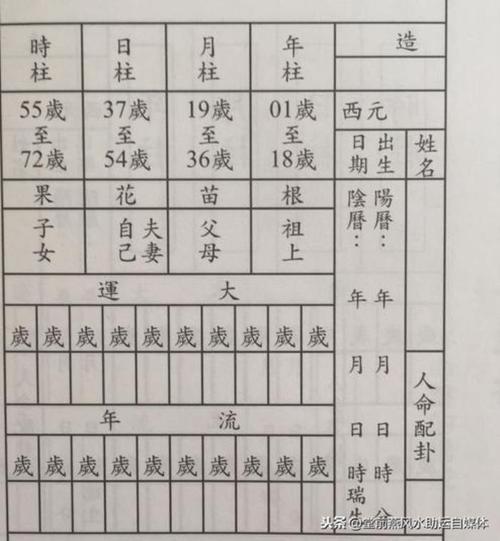 造
西元
姓名
出生日期
陽曆：年 月 日 時 分
陰曆：年 月 日 時瑞生
人命配卦
年柱
月柱
日柱
時柱
01歲至18歲
19歲至36歲
37歲至54歲
55歲至72歲
根
苗
花
果
祖上
父母
夫妻
自己
子女
大運
歲 歲 歲 歲 歲 歲 歲 歲 歲 歲
流年
歲 歲 歲 歲 歲 歲 歲 歲 歲 歲
头条@前燕风水助运自媒体